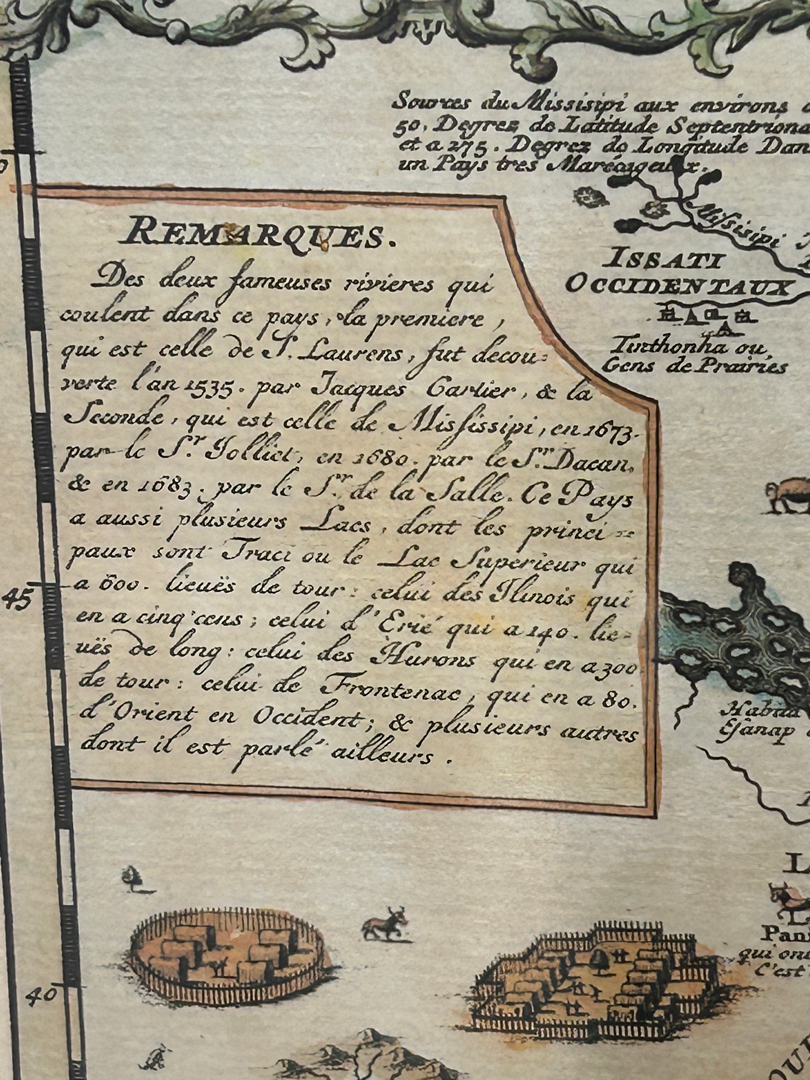 Sources du Missisipi aux environs
50. Degrez de Latitude Septentriona
et a 275. Degrez de Longitude Dan
un Pays tres Marécageux.
Missisipi
ISSATI
OCCIDENTAUX
Tinthonha ou
Gens de Prairies
REMARQUES.
Des deux fameuses rivieres qui
coulent dans ce pays, la premiere,
qui est celle de S. Laurens, fut decou=
verte l'an 1535. par Jacques Cartier, & la
Seconde, qui est celle de Missisipi, en 1673.
par le Sr. Jolliet, en 1680. par le Sr. Dacan,
& en 1683. par le Sr. de la Salle. Ce Pays
a aussi plusieurs Lacs, dont les princi=
paux sont Traci ou le Lac Superieur qui
a 600. lieuës de tour: celui des Ilinois qui
en a cinq cens; celui d'Erié qui a 140. lie=
uës de long: celui des Hurons qui en a 300
de tour: celui de Frontenac, qui en a 80.
d'Orient en Occident; & plusieurs autres
dont il est parlé ailleurs.
45
Ejanap
L
Pani
qui ont
C'est
40
OU